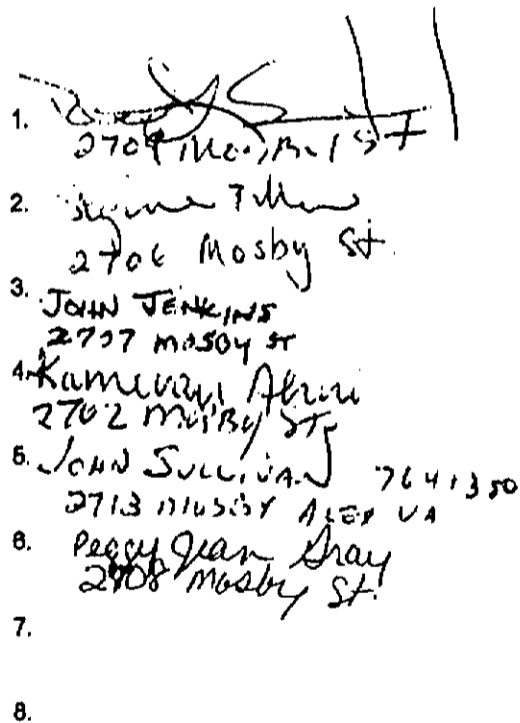 1.
2709 St
2.
2706 Mosby St.
3.
JOHN JENKINS
2707 MOSBY ST
4.
2702 Mosby St
5. JOHN SULLIVAN 7641350
2713 MOSBY ALEX VA
6. Peggy Jean Gray
2708 Mosby St.
7.
8.